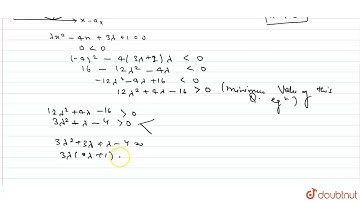 x-axis
λx² - 4x + 3λ + 1 = 0
0 < 0
(-4)² - 4(3λ+1)λ < 0
16 - 12λ² - 4λ < 0
-12λ² - 4λ + 16 < 0
12λ² + 4λ - 16 > 0 (Minimum Value of this Q. eqⁿ)
12λ² + 4λ - 16 > 0
3λ² + λ - 4 > 0
3λ² + 3λ + λ - 4
3λ(λ+1)
doubtnut